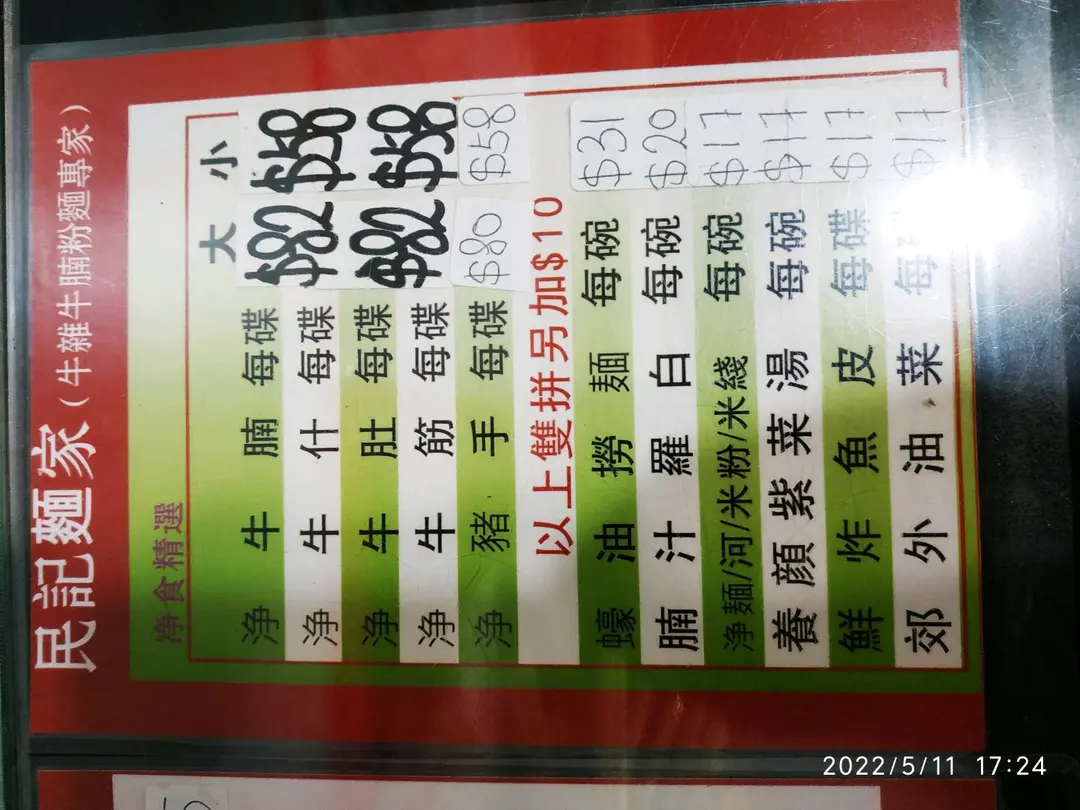 民記麵家(牛雜牛腩粉麵專家)
淨食精選
大 小
淨牛腩 每碟 $82 $58
淨牛什 每碟
淨牛肚 每碟 $82 $58
淨牛筋 每碟
淨豬手 每碟 $80 $58
以上雙拼另加$10
蠔油撈麵 每碗 $31
腩汁羅白 每碗 $20
淨麵/河/米粉/米綫 每碗 $17
養顔紫菜湯 每碗 $17
鮮炸魚皮 每碟 $17
郊外油菜 每 $17
2022/5/11 17:24